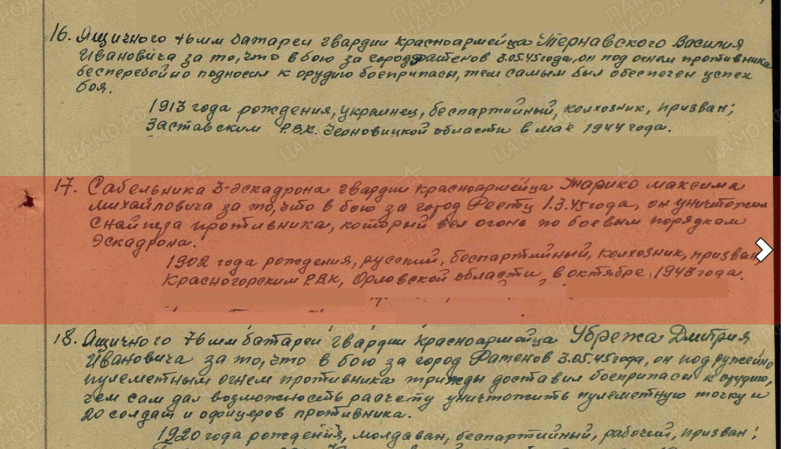 16. Ящичного 76мм батареи гвардии красноармейца Тернавского Василия
Ивановича за то, что в бою за город Ратенов 3.05.45года, он под огнем противника
бесперебойно подносил к орудию боеприпасы, тем самым был обеспечен успех
боя.
1913 года рождения, украинец, беспартийный, колхозник, призван;
Заставским РВК. Черновицкой области в мае 1944 года.
17. Сабельника 3-эскадрона гвардии красноармейца Тарико Максима
Михайловича за то, что в бою за город Реетц 1.3.45года, он уничтожил
снайпера противника, который вел огонь по боевым порядком
эскадрона.
1902 года рождения, русский, беспартийный, колхозник, призван
Красногорским РВК, Орловской области, в октябре 1943 года.
18. Ящичного 76мм батареи гвардии красноармейца Убрежа Дмитрия
Ивановича за то, что в бою за город Ратенов 3.05.45года, он под ружейно
пулеметным огнем противника трижды доставил боеприпасы к орудию,
чем сам дал возможность расчету уничтожить пулеметную точку и
20 солдат и офицеров противника.
1920 года рождения, молдаван, беспартийный, рабочий, призван;